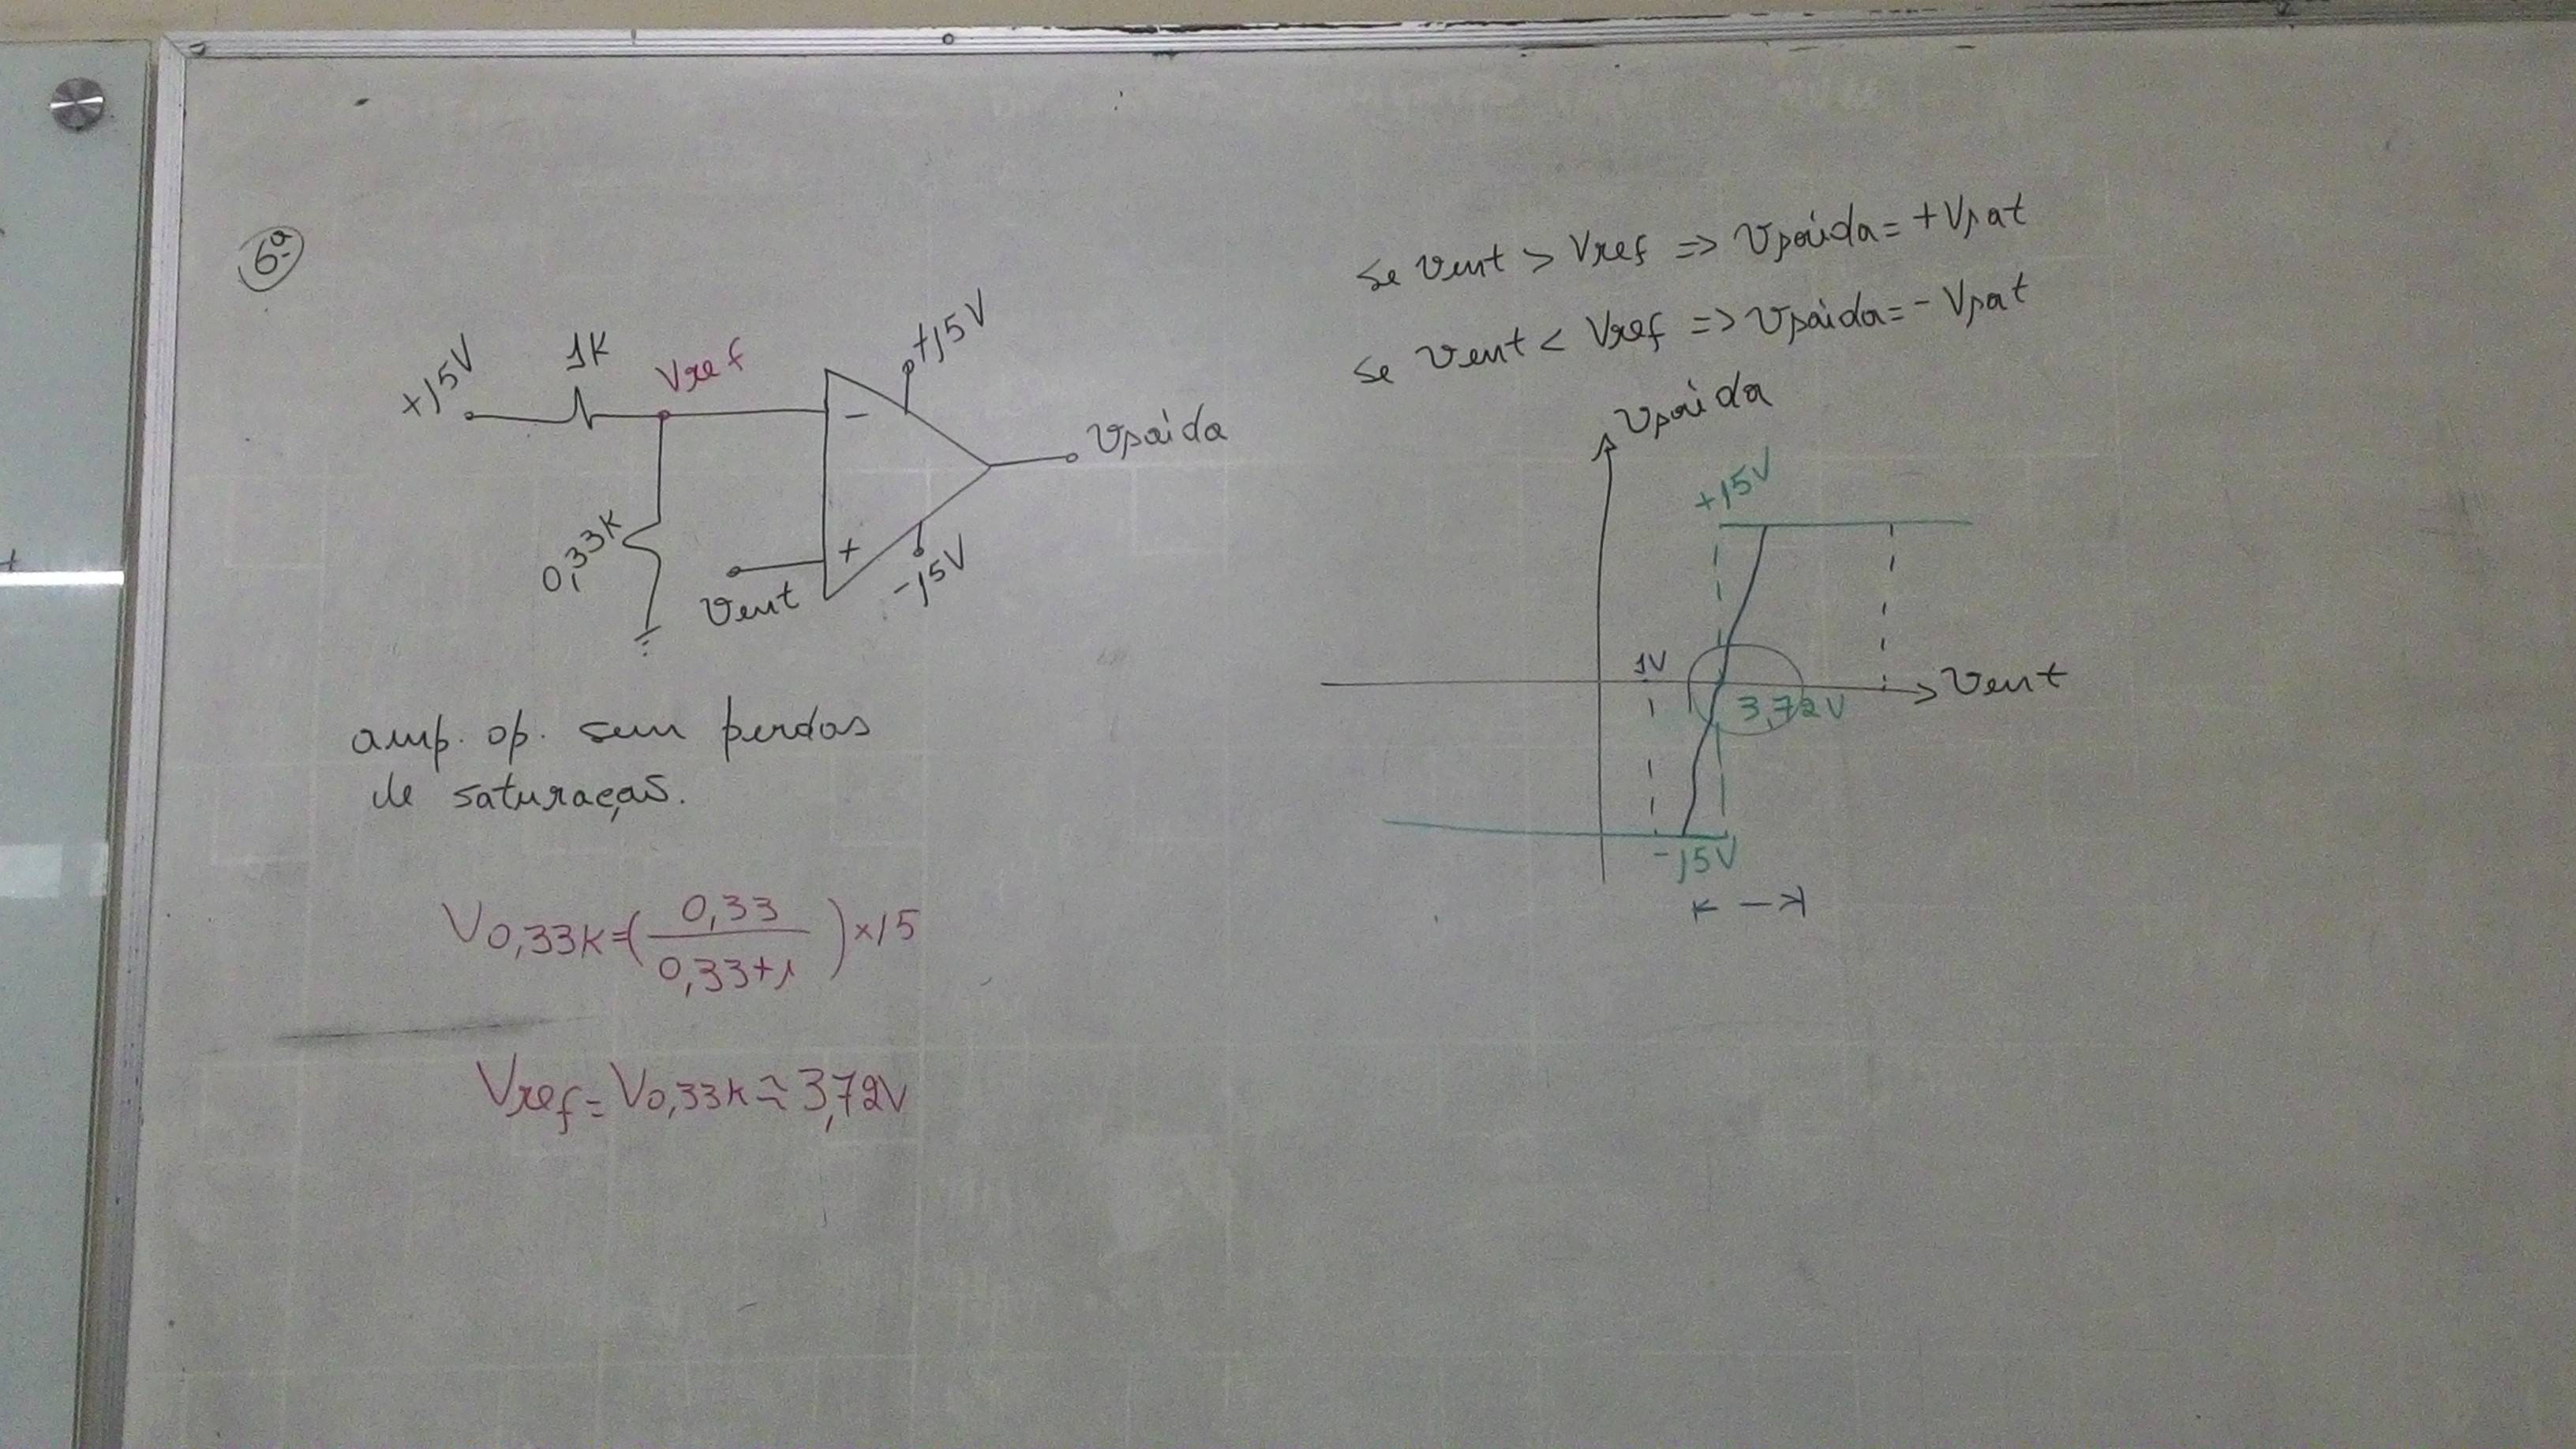 6ª
+15V
1K
Vref
+15V
-
Vsaida
0,33K
+
Vent
-15V
amp. op. sem perdas
de saturação.
V0,33K=(0,33/0,33+1)×15
Vref=V0,33K≈3,72V
Se Vent > Vref => Vsaida=+Vsat
Se Vent < Vref => Vsaida=-Vsat
Vsaida
+15V
1V
Vent
3,72V
-15V